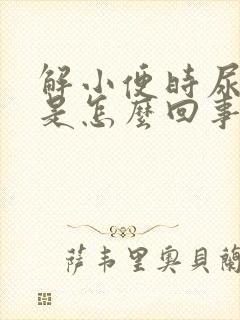 解小便時尿
是怎麼回事
薩韦里奥貝蘭